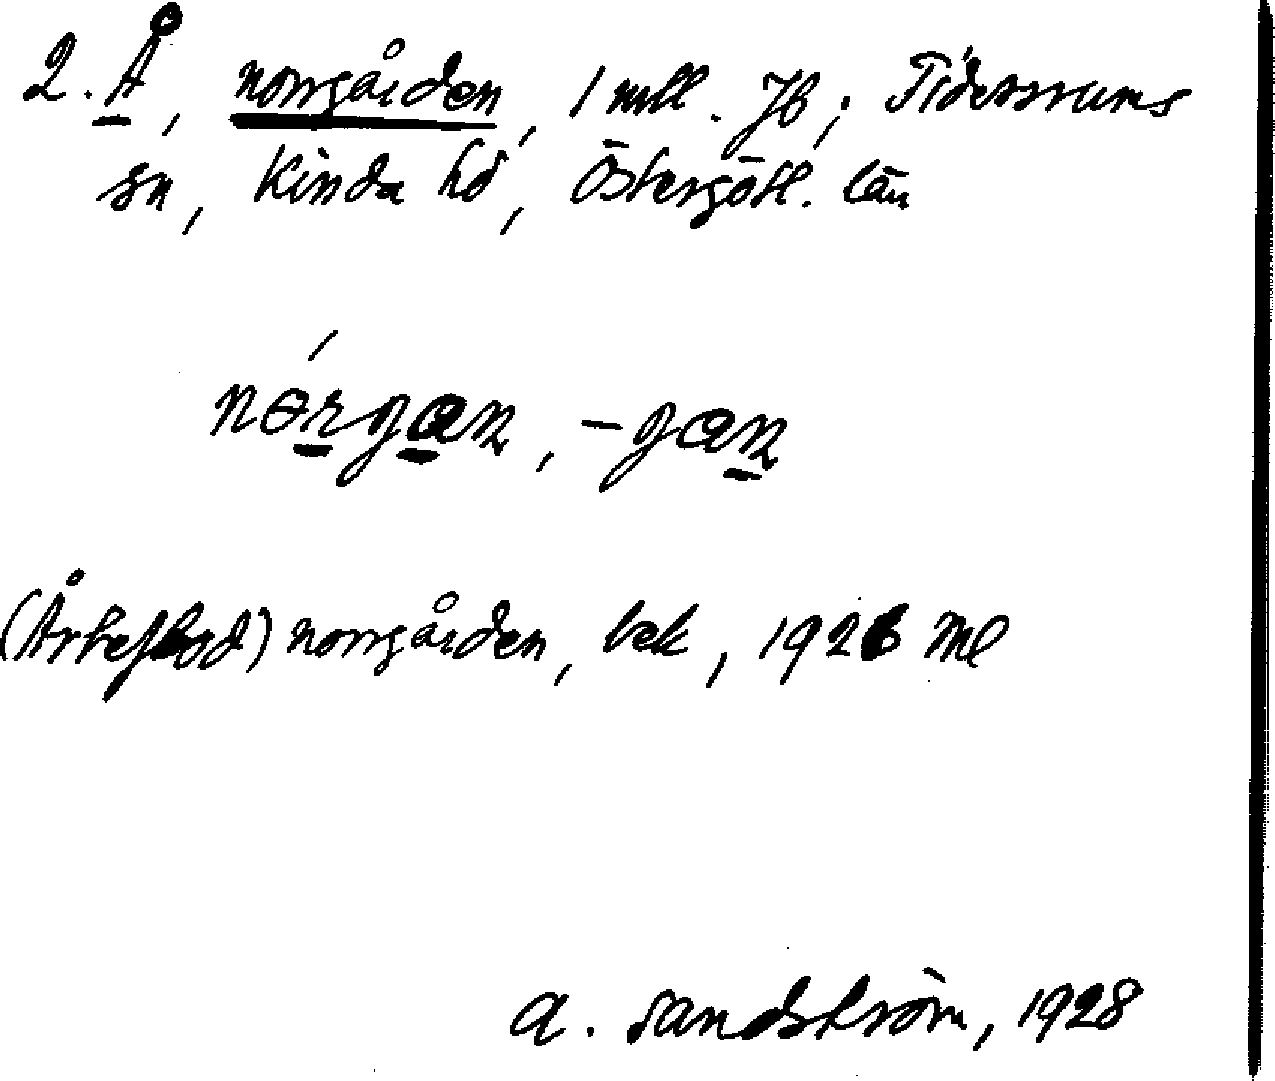 2. Å, norrgården, 1 mtl. Jb; Tidersrums
sn, Kinda hd, Östergötl. län
nɵ́rgan, -gan
norrgården, bek, 1926 Ml
A. Sandström, 1928